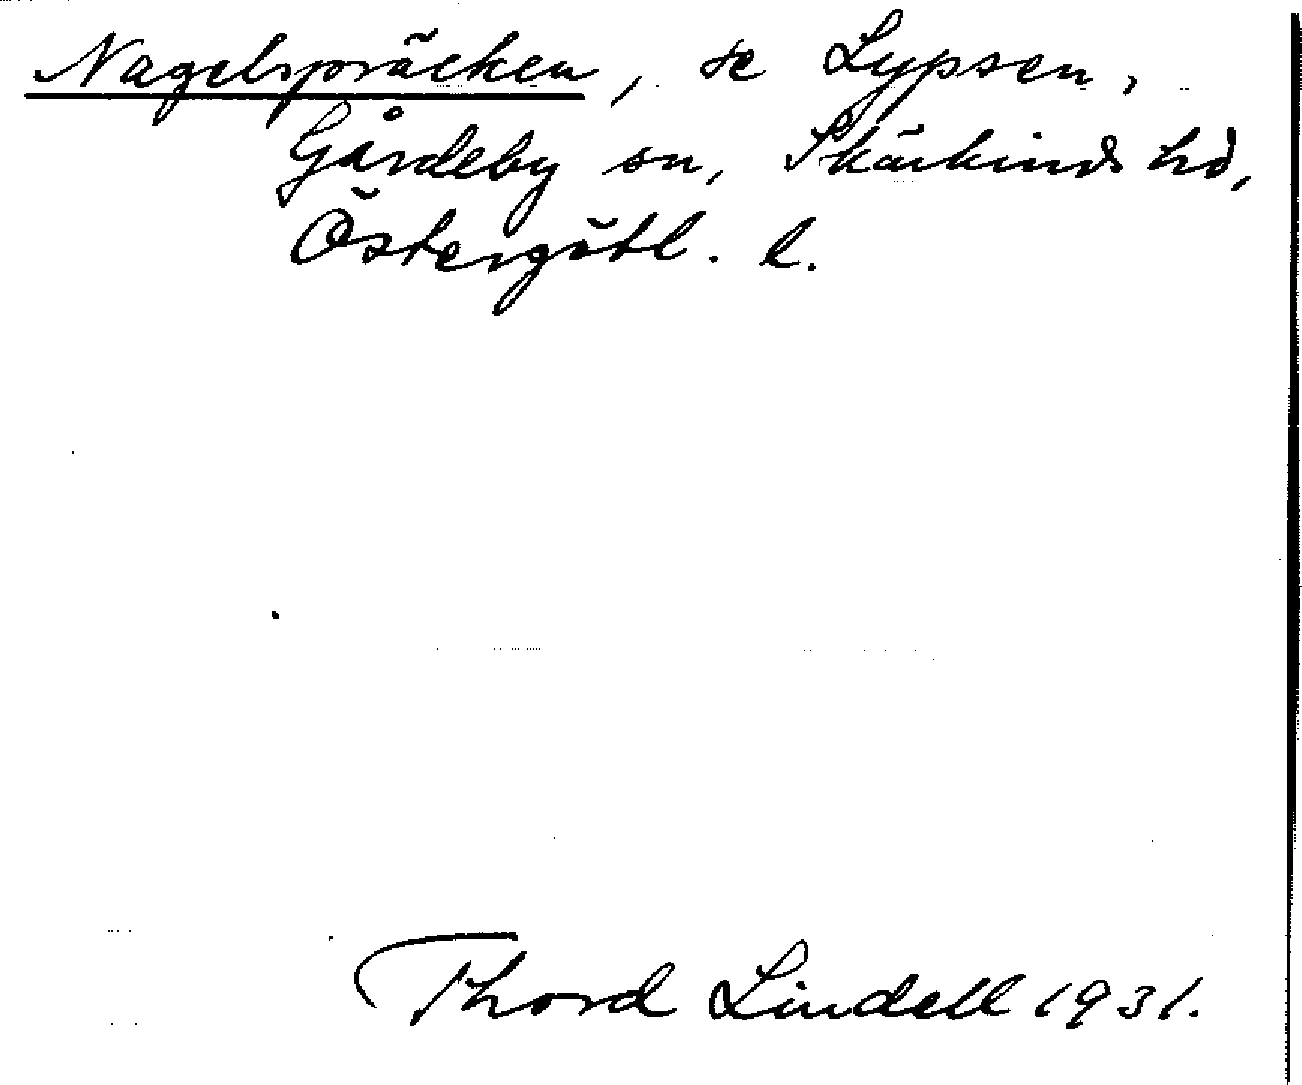 Nagelspräcken, se Lypsen,
Gårdeby sn, Skärkinds hd,
Östergötl. l.
Thord Lindell 1931.